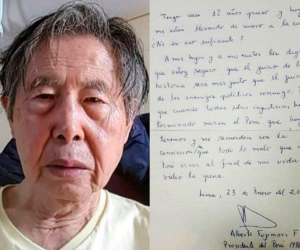 Tengo casi 12 años preso y hoy
me están llevando de nuevo a la co
¿No es eso suficiente?
A mis hijos y a mis nietos les digo
que estoy seguro que el juicio de la
historia será más justo que el juicio
de los enemigos políticos conmigo.
que cuando todas estas injusticias
terminado verán el Perú que
y me recuerden con la
convicción que todo lo malo que
viví al final de mi vida
valió la pena.
Lima, 23 de Enero del 20
Alberto Fujimori F
Presidente del Perú 199